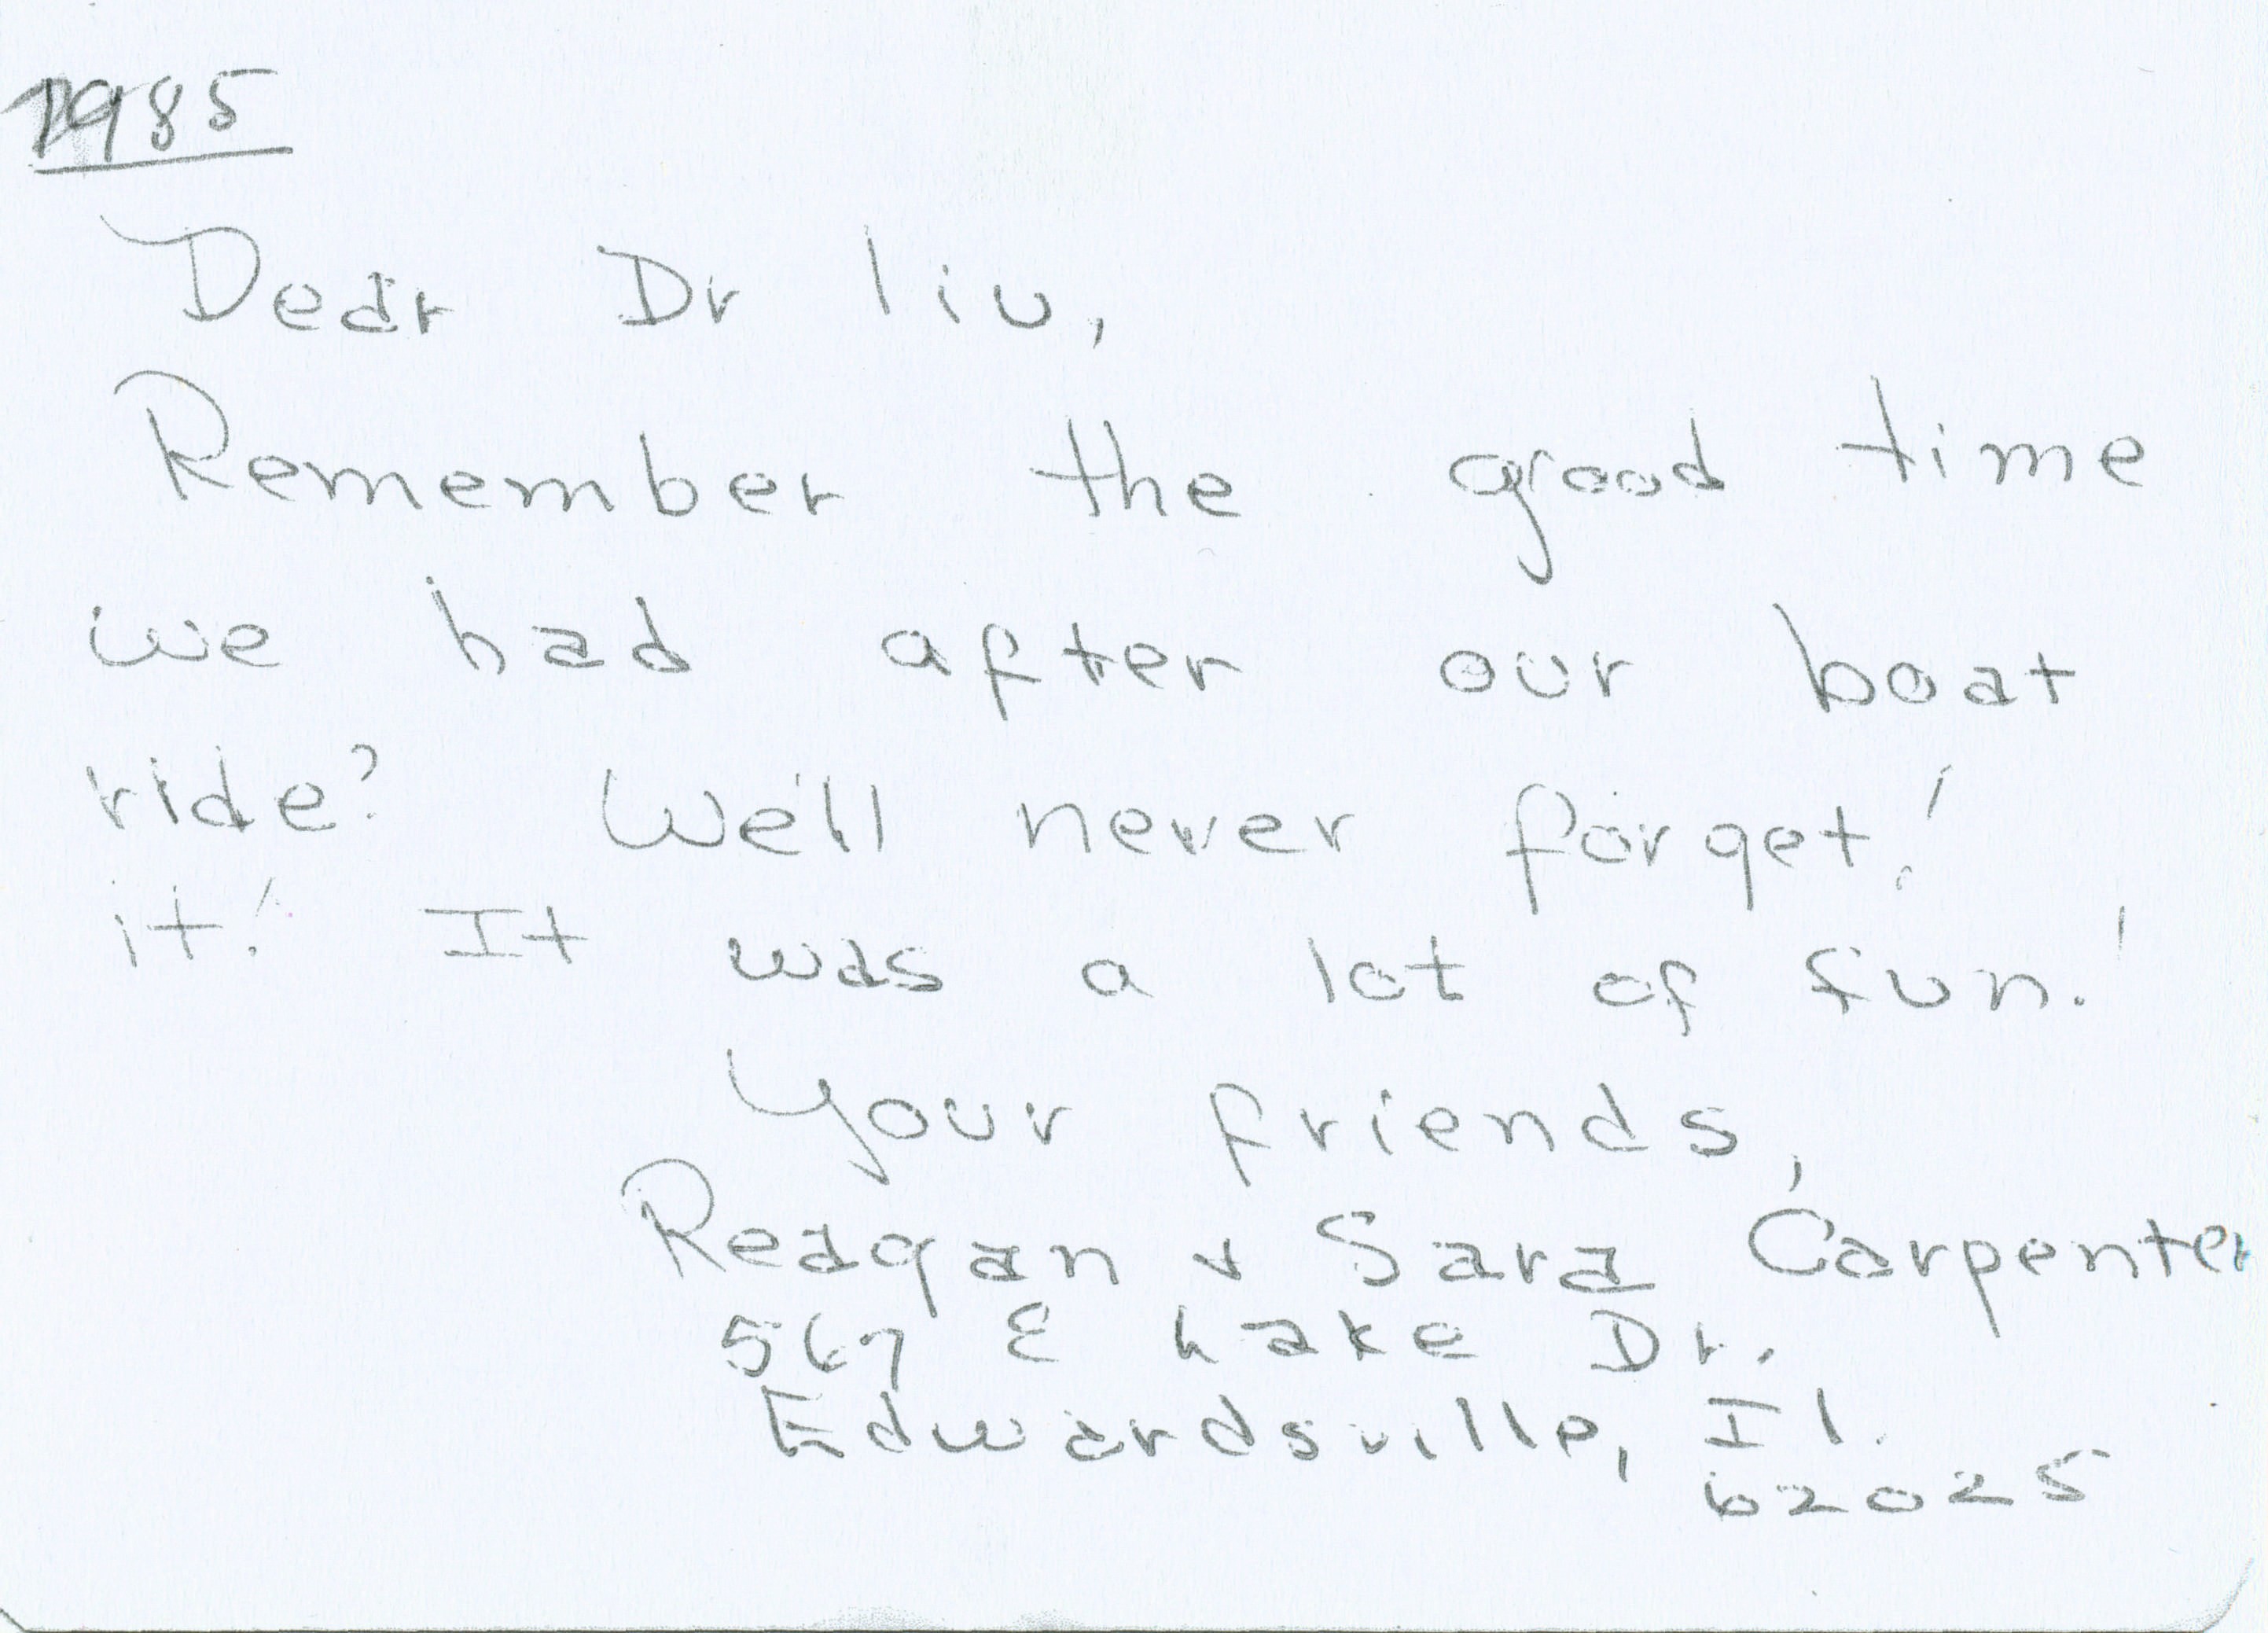 1985
Dear Dr liu,
Remember the good time
we had after our boat
ride? We'll never forget!
it! It was a lot of fun!
Your friends,
Reagan & Sara Carpenter
567 E Lake Dr.
Edwardsville, Il.
62025